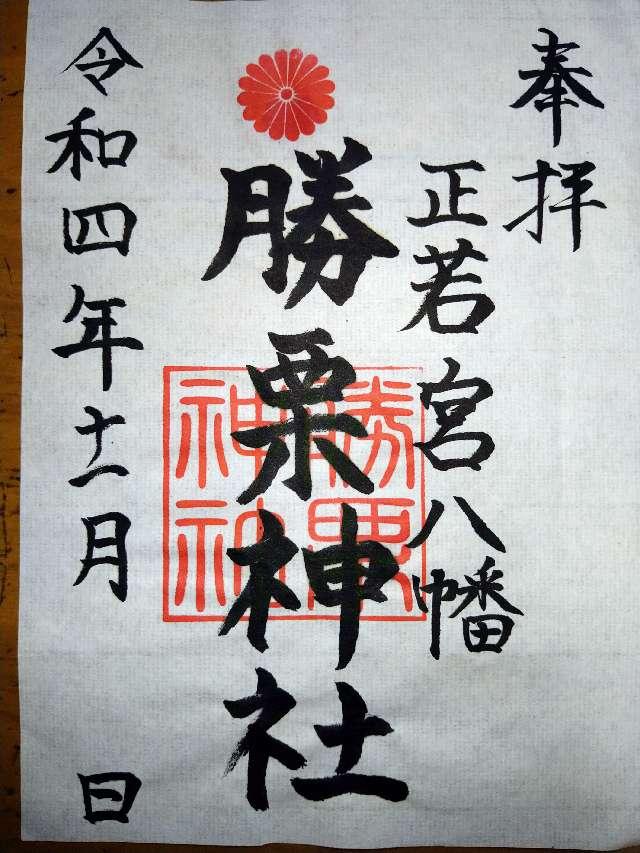 奉拝
正若宮八幡
勝栗神社
勝栗神社
令和四年十一月　日